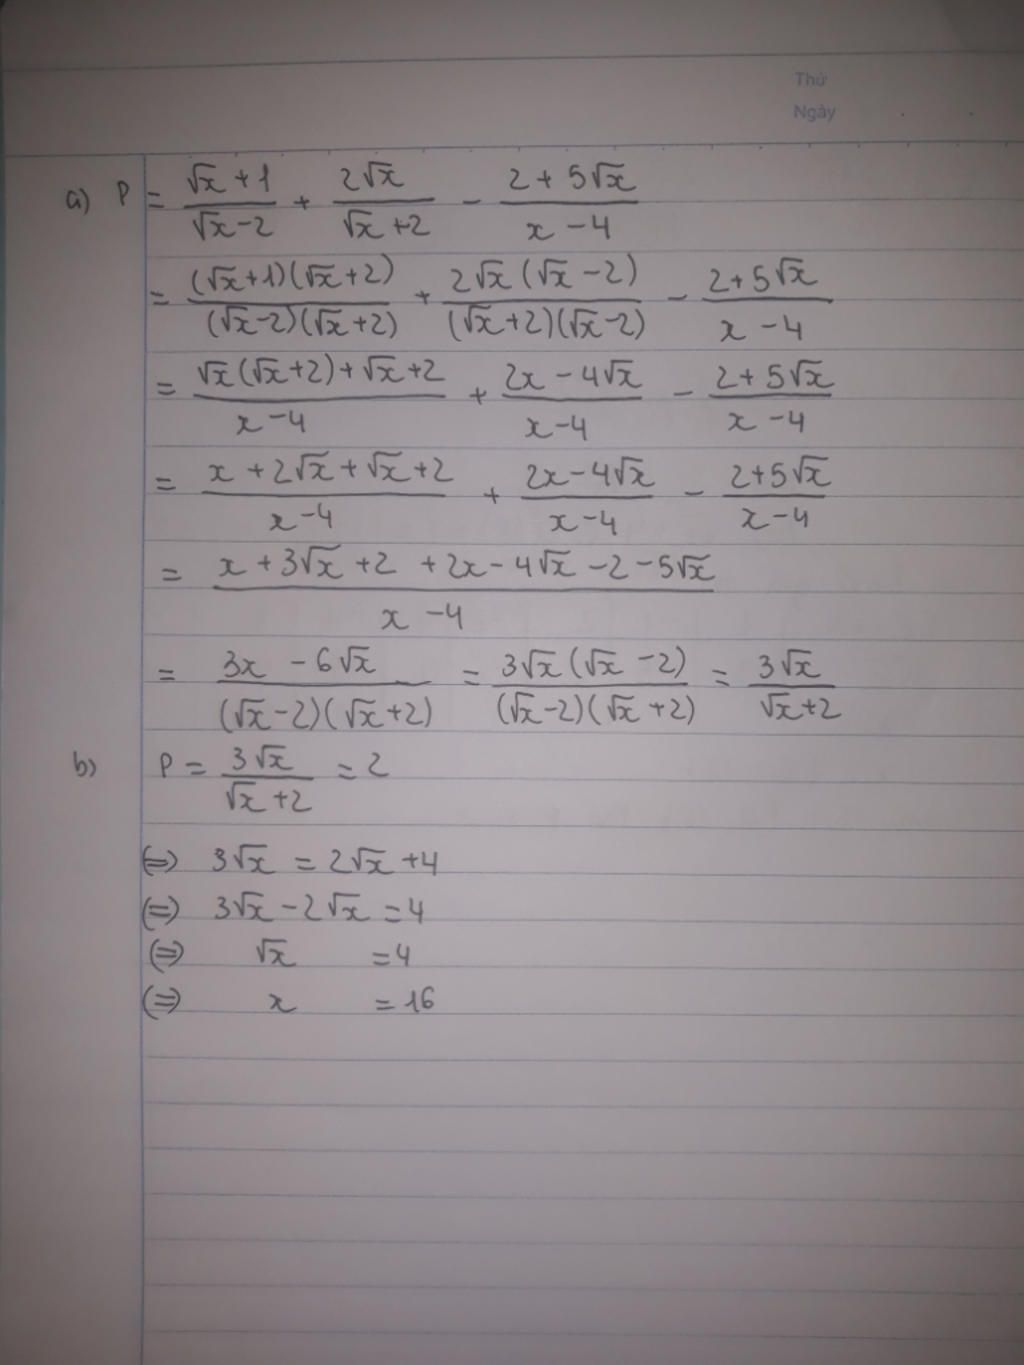 Thứ
Ngày
a) P = (√x + 1)/(√x - 2) + 2√x/(√x + 2) - (2 + 5√x)/(x - 4)
= (√x + 1)(√x + 2)/(√x - 2)(√x + 2) + 2√x(√x - 2)/(√x + 2)(√x - 2) - (2 + 5√x)/(x - 4)
= (√x(√x + 2) + √x + 2)/(x - 4) + (2x - 4√x)/(x - 4) - (2 + 5√x)/(x - 4)
= (x + 2√x + √x + 2)/(x - 4) + (2x - 4√x)/(x - 4) - (2 + 5√x)/(x - 4)
= (x + 3√x + 2 + 2x - 4√x - 2 - 5√x)/(x - 4)
= (3x - 6√x)/(√x - 2)(√x + 2) = 3√x(√x - 2)/(√x - 2)(√x + 2) = 3√x/(√x + 2)
b) P = 3√x/(√x + 2) = 2
(=) 3√x = 2√x + 4
(=) 3√x - 2√x = 4
(=) √x = 4
(=) x = 16